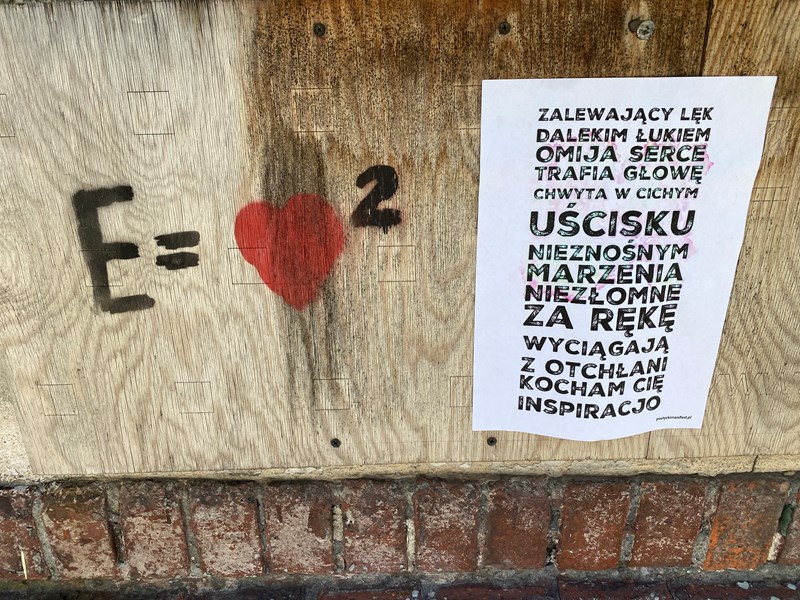 E=❤²
ZALEWAJĄCY LĘK
DALEKIM ŁUKIEM
OMIJA SERCE
TRAFIA GŁOWĘ
CHWYTA W CICHYM
UŚCISKU
NIEZNOŚNYM
MARZENIA
NIEZŁOMNE
ZA RĘKĘ
WYCIĄGAJĄ
Z OTCHŁANI
KOCHAM CIĘ
INSPIRACJO